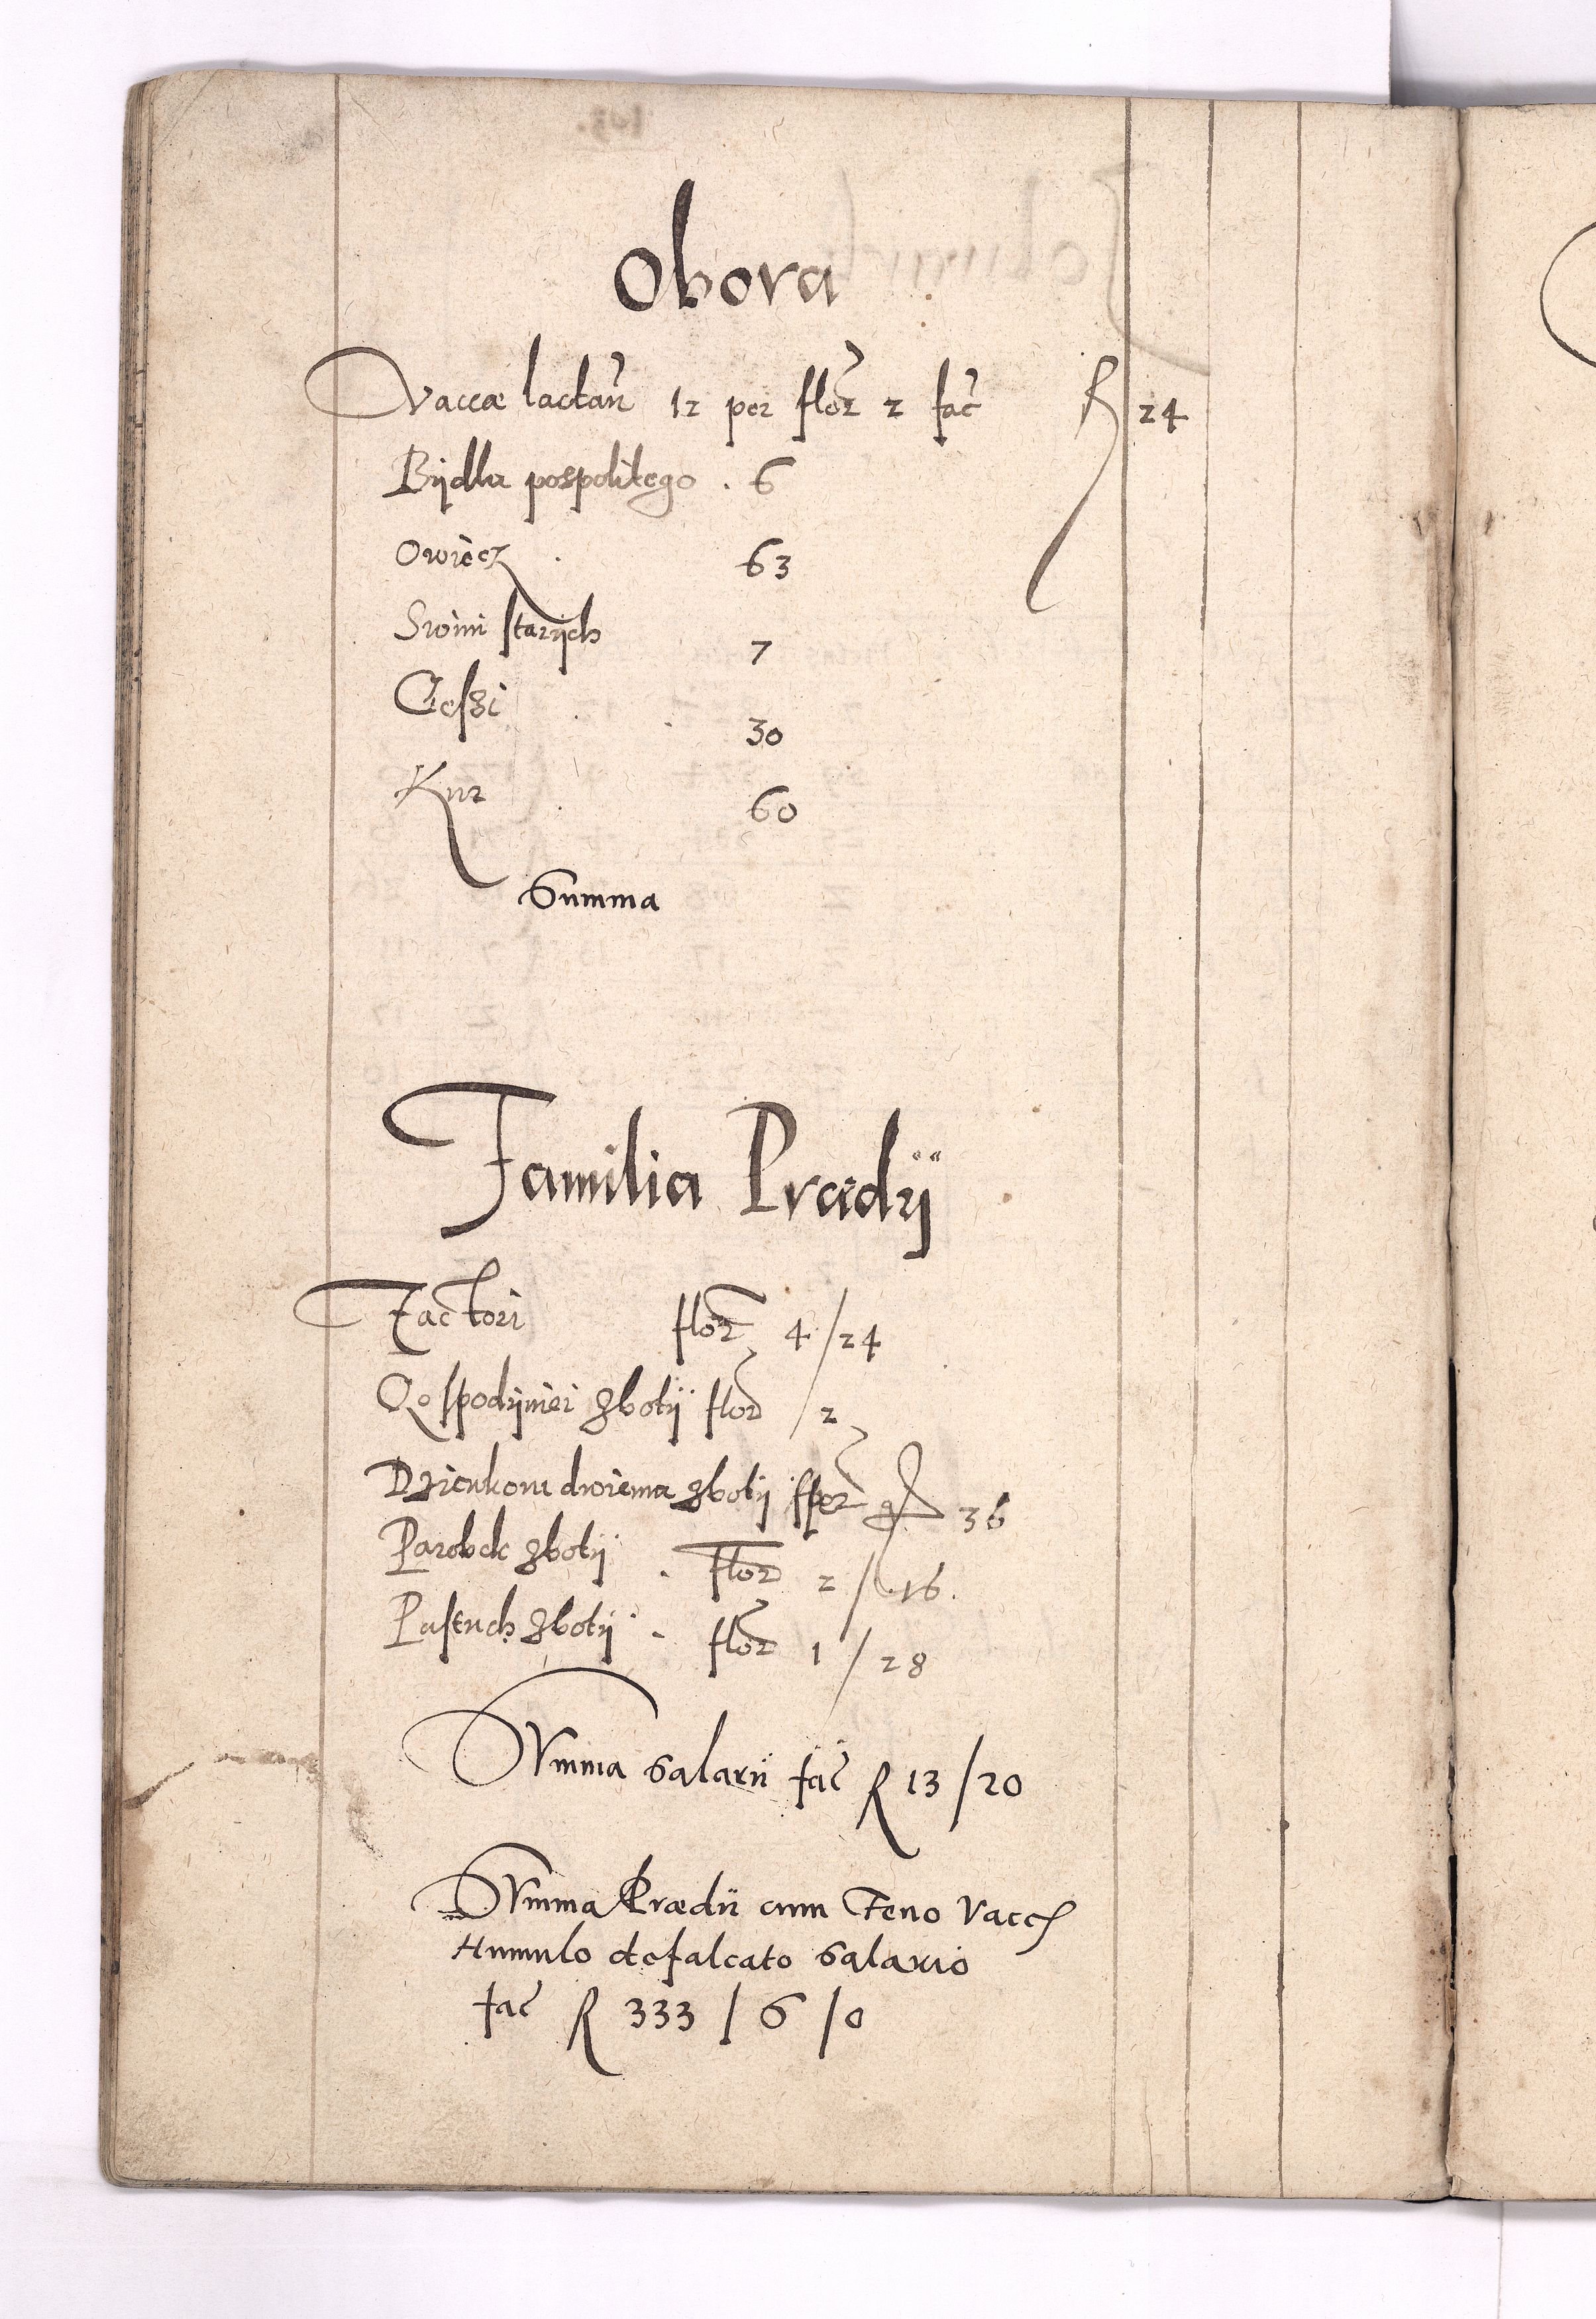 Obora
Vaccæ lactan̄ 12 per flor 2 fac̄ R 24
Bÿdla pospolitego . 6
Owiecz . 63
Swini starÿch 7
Gęszi . 30
Kur . 60
Summa
Familia Prædÿ
Factori flor 4 / 24
Gospodÿniei zbotÿ flor / 2
Dziewkom dwiema zbotÿ per 36
Parobek zbotÿ . flor 2 / 16.
Pastuch zbotÿ . flor 1 / 28
Summa salarii fac̄ R 13 / 20
Summa Prædii cum Feno Vacc
Humulo defalcato salario
fac̄ R 333 / 6 / 0